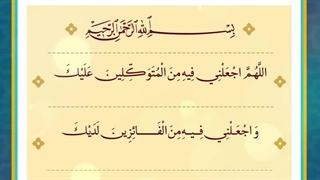 بِسْمِ اللَّهِ الرَّحْمَنِ الرَّحِيمِ
اللَّهُمَّ اجْعَلْنِي فِيهِ مِنَ الْمُتَوَكِّلِينَ عَلَيْكَ
وَاجْعَلْنِي فِيهِ مِنَ الْفَائِزِينَ لَدَيْكَ